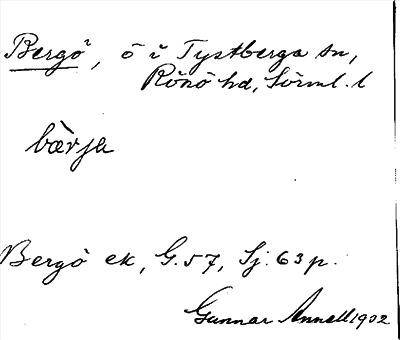 Bergö, ö i Tystberga sn,
Rönö hd, Sörml. l
bàrja
Bergö ek, G. 57, Sj. 63 p.
Gunnar Annell 1902